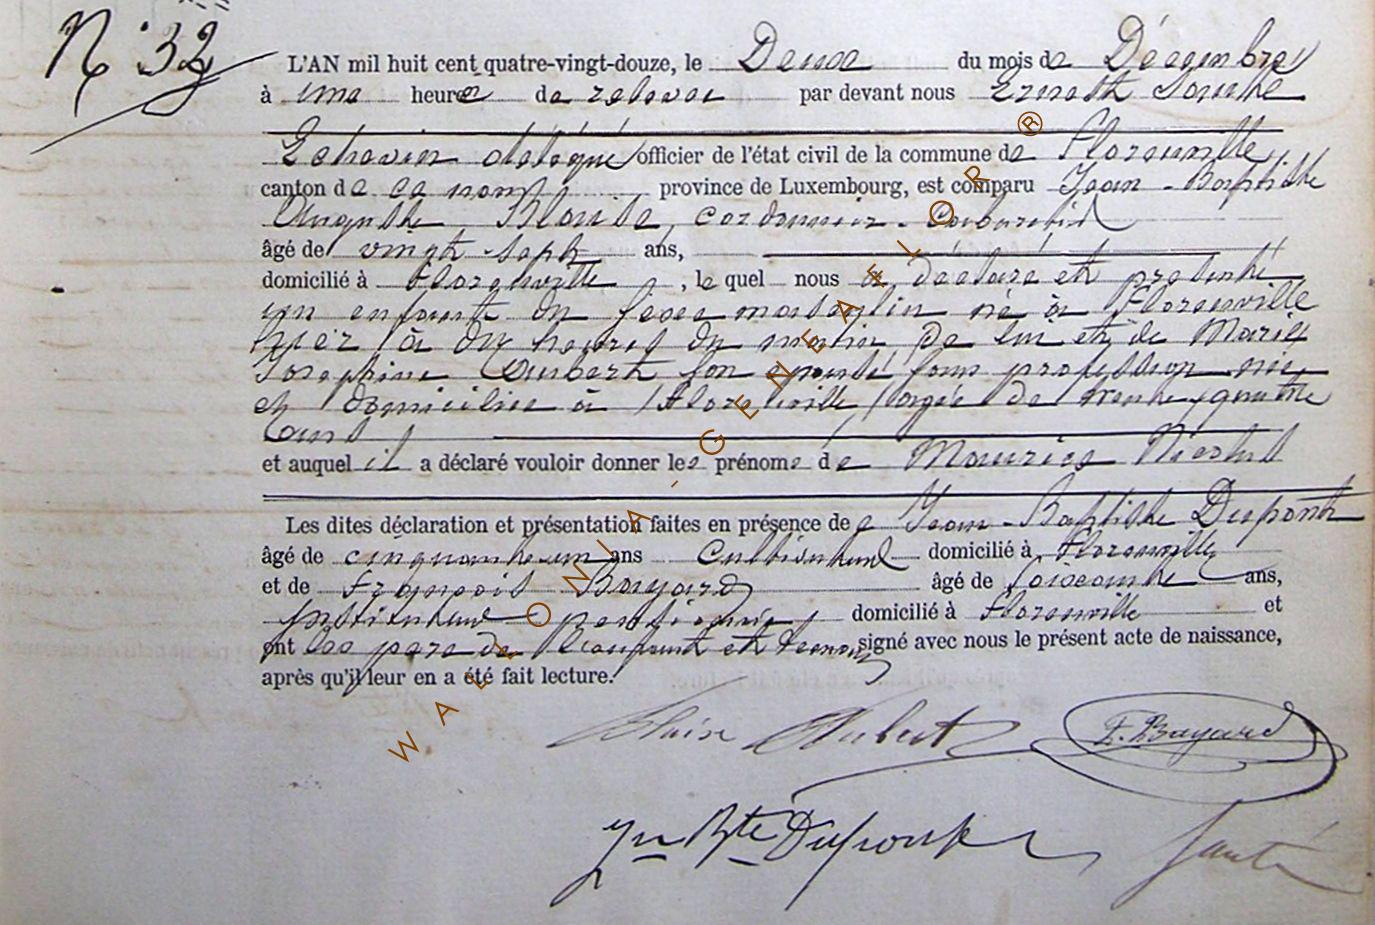 N° 32
L'AN mil huit cent quatre-vingt-douze, le Deux du mois de Décembre
à une heure de relevée par devant nous Ernest
Echevin délégué officier de l'état civil de la commune de Florenville
canton de ce nom province de Luxembourg, est comparu Jean-Baptiste
Auguste Blaise, cordonnier-Cabaretier
âgé de vingt-sept ans,
domicilié à Florenville, lequel nous a déclaré et présenté
un enfant du sexe masculin né à Florenville
hier à dix heures du matin de lui et de Marie
Joséphine Aubert son épouse sans profession née
et domiciliée à Florenville, âgée de trente-quatre
ans
et auquel il a déclaré vouloir donner les prénoms de Maurice Nicolas
Les dites déclaration et présentation faites en présence de Jean-Baptiste Dupont
âgé de cinquante-un ans Cultivateur domicilié à Florenville
et de François Bayard âgé de soixante ans,
Instituteur pensionné domicilié à Florenville et
ont les père de l'enfant et témoins signé avec nous le présent acte de naissance,
après qu'il leur en a été fait lecture.
Blaise Aubert F. Bayard
Jn Bte Dupont
WALLONIA-GENEAELOR®